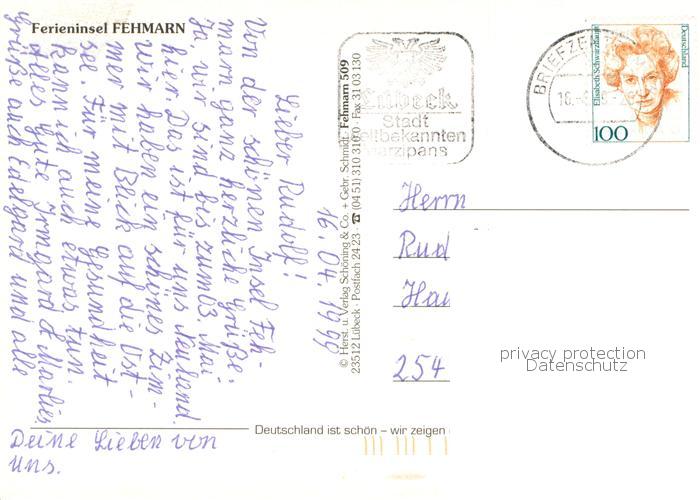 Ferieninsel FEHMARN
16.04.1999
Lieber Rudolf!
Von der schönen Insel Feh-
marn ganz herzliche Grüße.
Ja, wir sind bis zum 03. Mai
hier. Das ist für uns Neuland.
Wir haben ein schönes Zim-
mer mit Blick auf die Ost-
see. Für meine Gesundheit
kann ich auch etwas tun.
Alles Gute Irmgard & Marlies
Grüße auch Edelgard und alle
Deine Lieben von
uns.
© Herst. u. Verlag Schöning & Co. + Gebr. Schmidt · Fehmarn 509
23512 Lübeck · Postfach 24 23 · ☎ (04 51) 310 310 · Fax 31 03 130
Deutschland ist schön – wir zeigen
Lübeck
Stadt
weltbekannten
Marzipans
BRIEFZE
Elisabeth Schwarzhaupt
Deutschland
100
Herrn
Rud
Hau
254
privacy protection
Datenschutz